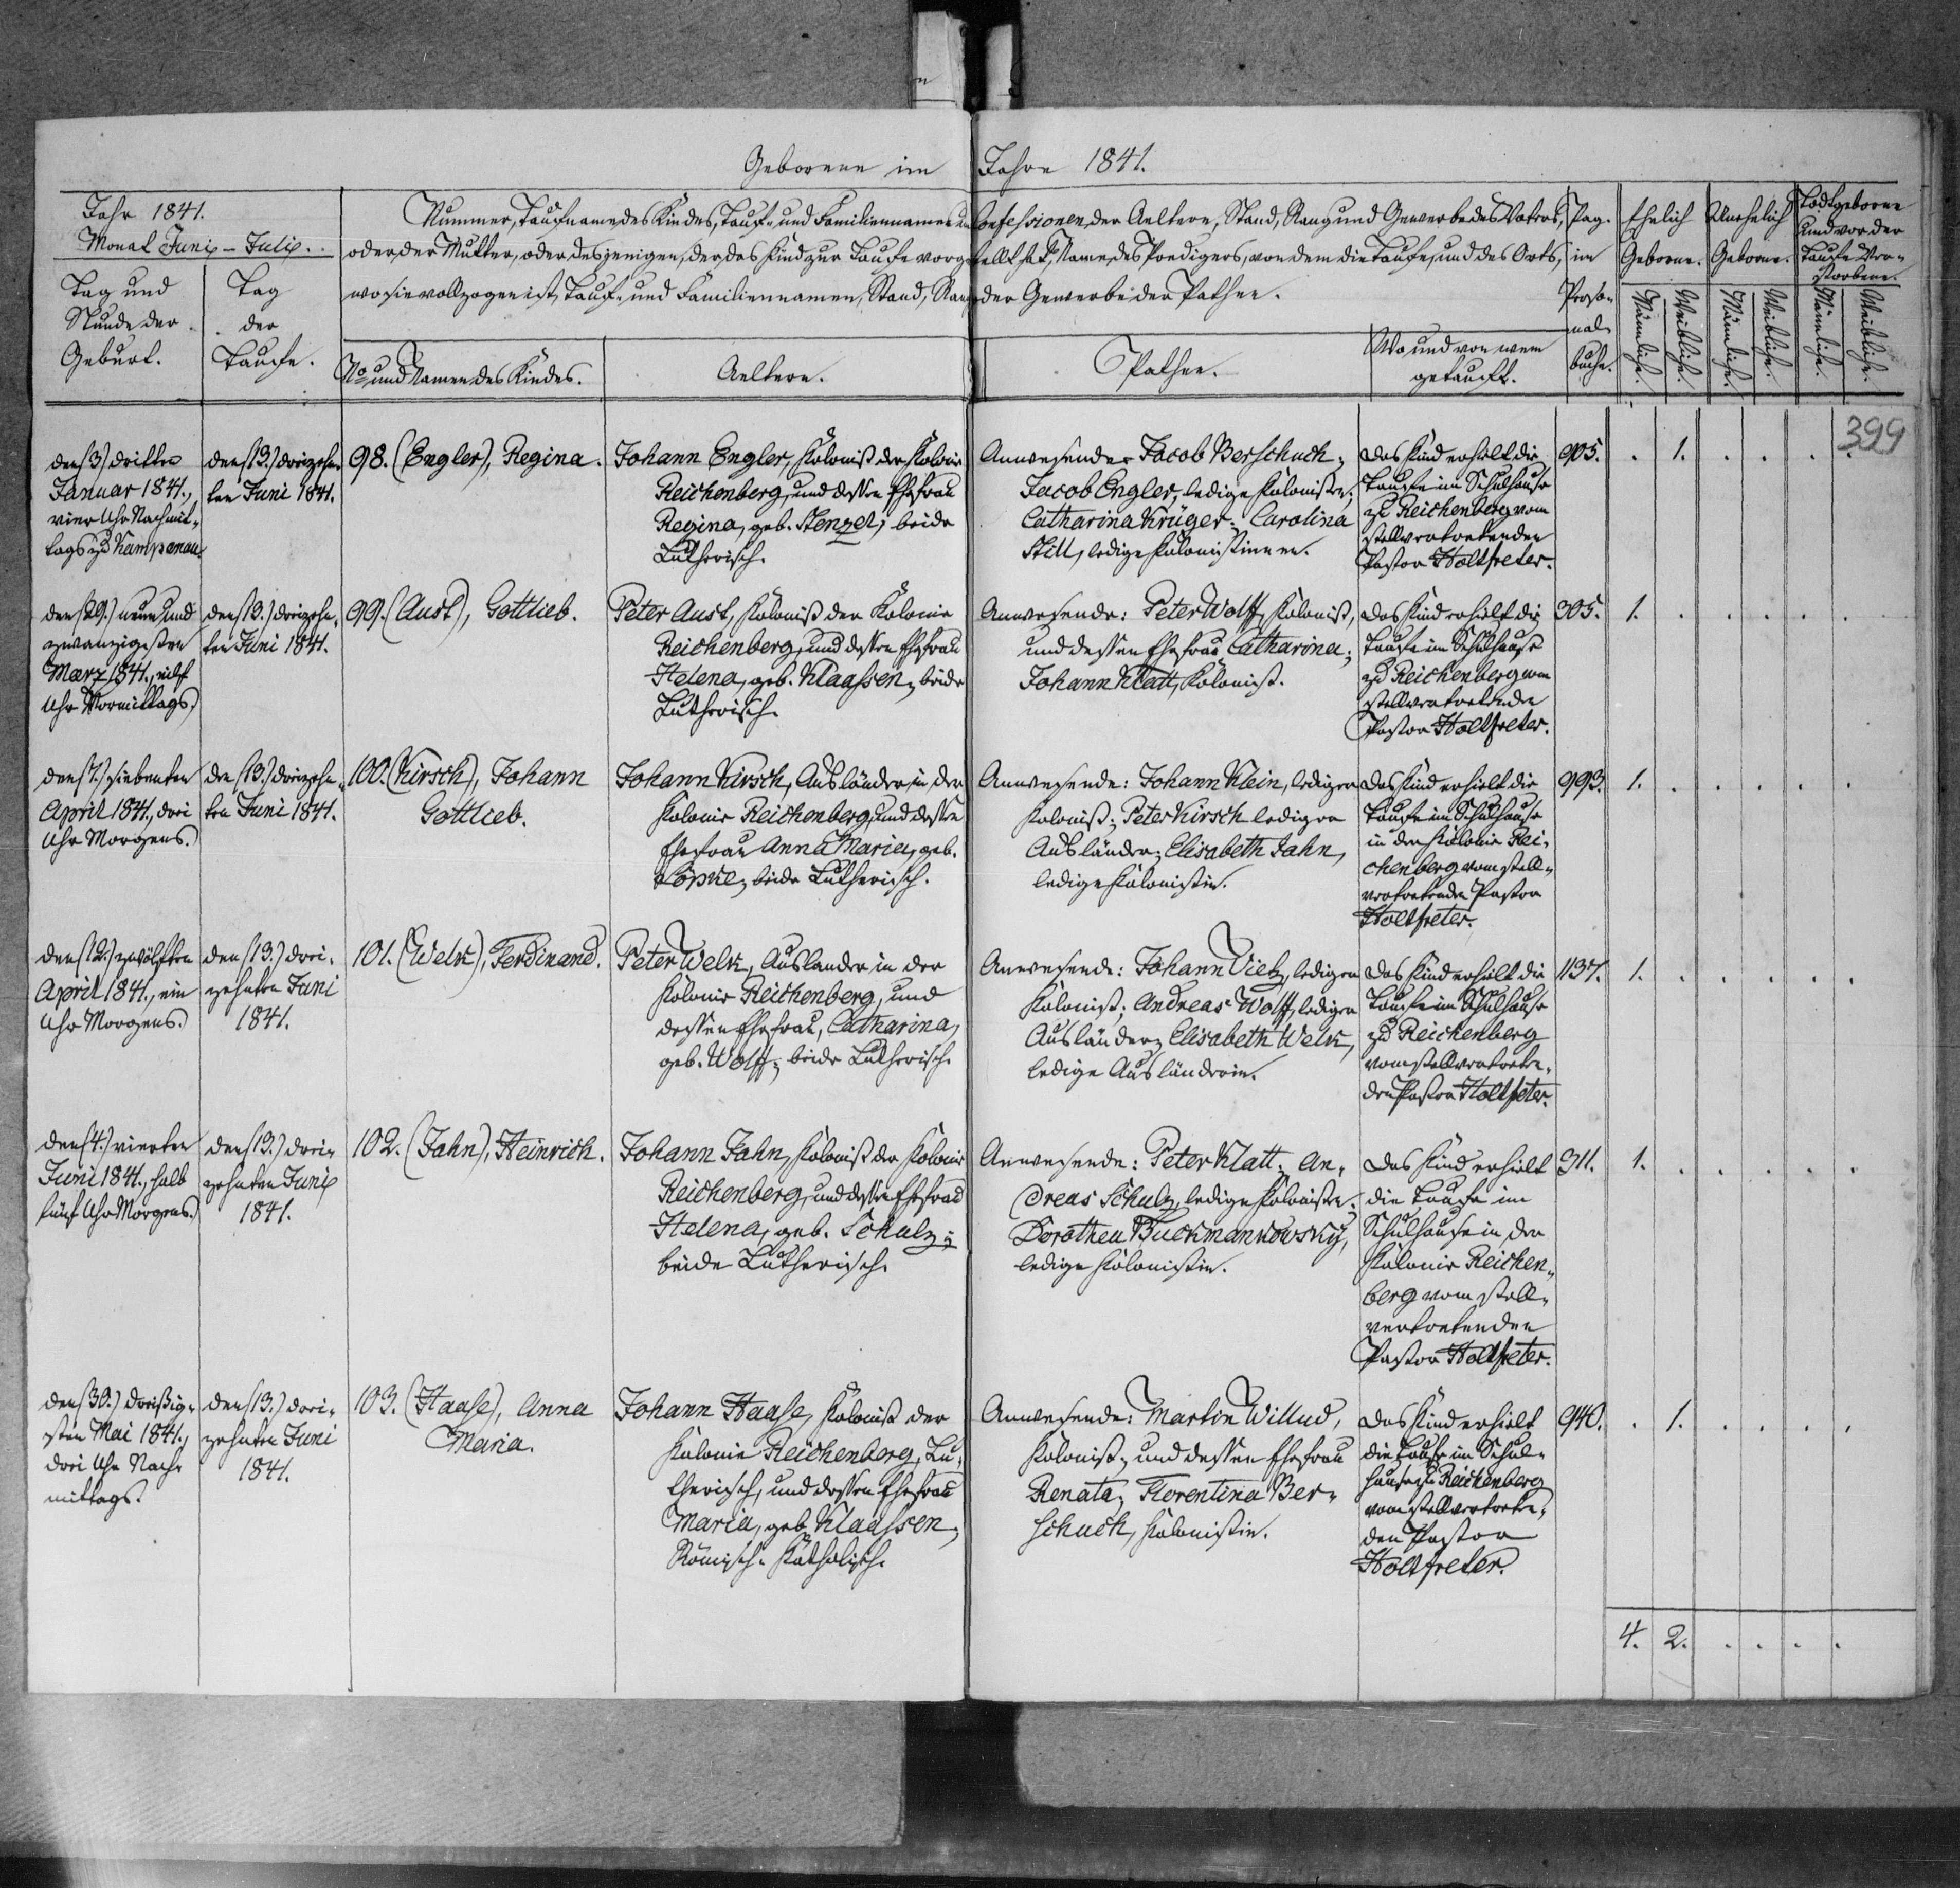 Geborene im Jahre 1841.
Jahr 1841.
Monat Juni - Juli.
Tag und
Stunde der
Geburt.
Tag
der
Taufe.
Nummer, Taufname des Kindes, Tauf- und Familiennamen und Confessionen der Aeltern, Stand, Rang und Gewerbe des Vaters,
oder der Mutter, oder desjenigen, der das Kind zur Taufe vorgestellt hat, Name des Predigers, von dem die Taufe, und des Orts,
wo sie vollzogen ist, Tauf- und Familiennamen, Stand, Rang oder Gewerbe der Pathen.
No und Namen des Kindes.
Aeltern.
Pathen.
Wo und von wem
getauft.
Pag.
im
Perso-
nal-
buche.
Ehelich
Geborne.
Unehelich
Geborne.
Todtgeborne
und vor der
Taufe Ver-
storbene.
Männliche.
Weibliche.
Männliche.
Weibliche.
Männliche.
Weibliche.
399
den (3) dritten
Januar 1841.,
vier Uhr Nachmit-
tags zu Kampenau.
den (13.) dreizehn-
ten Juni 1841.
98. (Engler), Regina.
Johann Engler, Kolonist der Kolonie
Reichenberg, und dessen Ehefrau
Regina, geb. Stenzel; beide
Lutherisch.
Anwesende: Jacob Berschuck;
Jacob Engler, ledige Kolonisten;
Catharina Krüger; Carolina
Still, ledige Kolonistinnen.
Das Kind erhielt die
Taufe im Schulhause
zu Reichenberg vom
stellvertretenden
Pastor Holtfreter.
905. . 1. . . . .
den (29.) neun und
zwanzigsten
Maerz 1841., eilf
Uhr Vormittags.
den (13.) dreizehn-
ten Juni 1841.
99. (Aust), Gottlieb.
Peter Aust, Kolonist der Kolonie
Reichenberg, und dessen Ehefrau
Helena, geb. Klaassen; beide
Lutherisch.
Anwesende: Peter Wolff, Kolonist,
und dessen Ehefrau Catharina;
Johann Klatt, Kolonist.
Das Kind erhielt die
Taufe im Schulhause
zu Reichenberg vom
stellvertretenden
Pastor Holtfreter.
305. 1. . . . . .
den (7.) siebenten
April 1841., drei
Uhr Morgens.
den (13.) dreizehn-
ten Juni 1841.
100. (Kirsch), Johann
Gottlieb.
Johann Kirsch, Ausländer in der
Kolonie Reichenberg, und dessen
Ehefrau Anna Maria, geb.
Köpke; beide Lutherisch.
Anwesende: Johann Klein, lediger
Kolonist; Peter Kirsch lediger
Ausländer; Elisabeth Jahn,
ledige Kolonistin.
Das Kind erhielt die
Taufe im Schulhause
in der Kolonie Rei-
chenberg vom stell-
vertretenden Pastor
Holtfreter.
993. 1. . . . . .
den (12.) zwölften
April 1841., ein
Uhr Morgens.
den (13.) drei-
zehnten Juni
1841.
101. (Welk), Ferdinand.
Peter Welk, Ausländer in der
Kolonie Reichenberg, und
dessen Ehefrau, Catharina,
geb. Wolff; beide Lutherisch.
Anwesende: Johann Vietz, lediger
Kolonist; Andreas Wolff, lediger
Ausländer; Elisabeth Welk,
ledige Ausländerin.
Das Kind erhielt die
Taufe im Schulhause
zu Reichenberg
vom stellvertreten-
den Pastor Holtfreter.
1137. 1. . . . . .
den (4.) vierten
Juni 1841., halb
fünf Uhr Morgens.
den (13.) drei-
zehnten Juni
1841.
102. (Jahn), Heinrich.
Johann Jahn, Kolonist der Kolonie
Reichenberg, und dessen Ehefrau
Helena, geb. Schulz;
beide Lutherisch.
Anwesende: Peter Klatt; An-
dreas Schulz, ledige Kolonisten;
Dorothea Buckmankowsky,
ledige Kolonistin.
Das Kind erhielt
die Taufe im
Schulhause in der
Kolonie Reichen-
berg vom stell-
vertretenden
Pastor Holtfreter.
311. 1. . . . . .
den (30.) dreißig-
sten Mai 1841.,
drei Uhr Nach-
mittags.
den (13.) drei-
zehnten Juni
1841.
103. (Haase), Anna
Maria.
Johann Haase, Kolonist der
Kolonie Reichenberg, Lu-
therisch, und dessen Ehefrau
Maria, geb. Klaassen;
Römisch-Katholisch.
Anwesende: Martin Willud,
Kolonist, und dessen Ehefrau
Renata; Florentina Ber-
schuck, Kolonistin.
Das Kind erhielt
die Taufe im Schul-
hause zu Reichenberg
vom stellvertreten-
den Pastor
Holtfreter.
940. . 1. . . . .
4. 2. . . . .